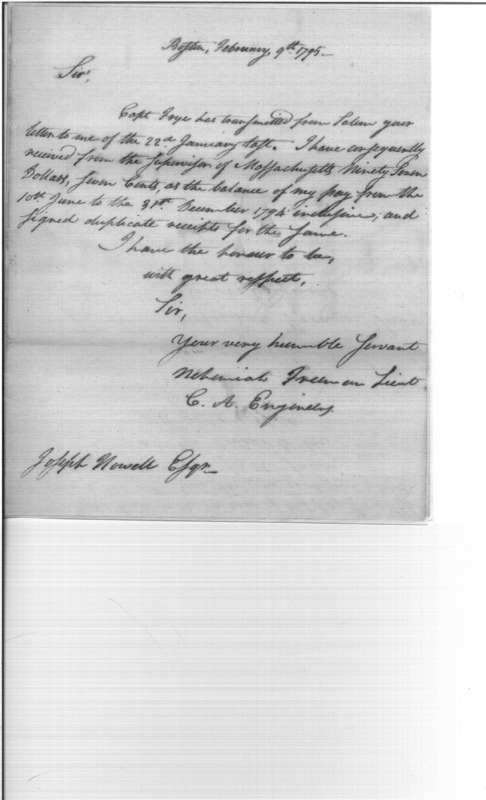 Boston, February, 9th 1795.
Sir,
Capt Frye has transmitted from Salem your
letter to me of the 22d January last. I have consequently
received from the Supervisor of Massachusetts Ninety Seven
Dollars, Seven Cents, as the balance of my pay from the
10th June to the 31st December 1794 inclusive, and
signed duplicate receipts for the same.
I have the honour to be,
with great respect,
Sir,
Your very humble Servant
Nehemiah Freeman Lieut
C. A. Engineers
Joseph Howell Esqr